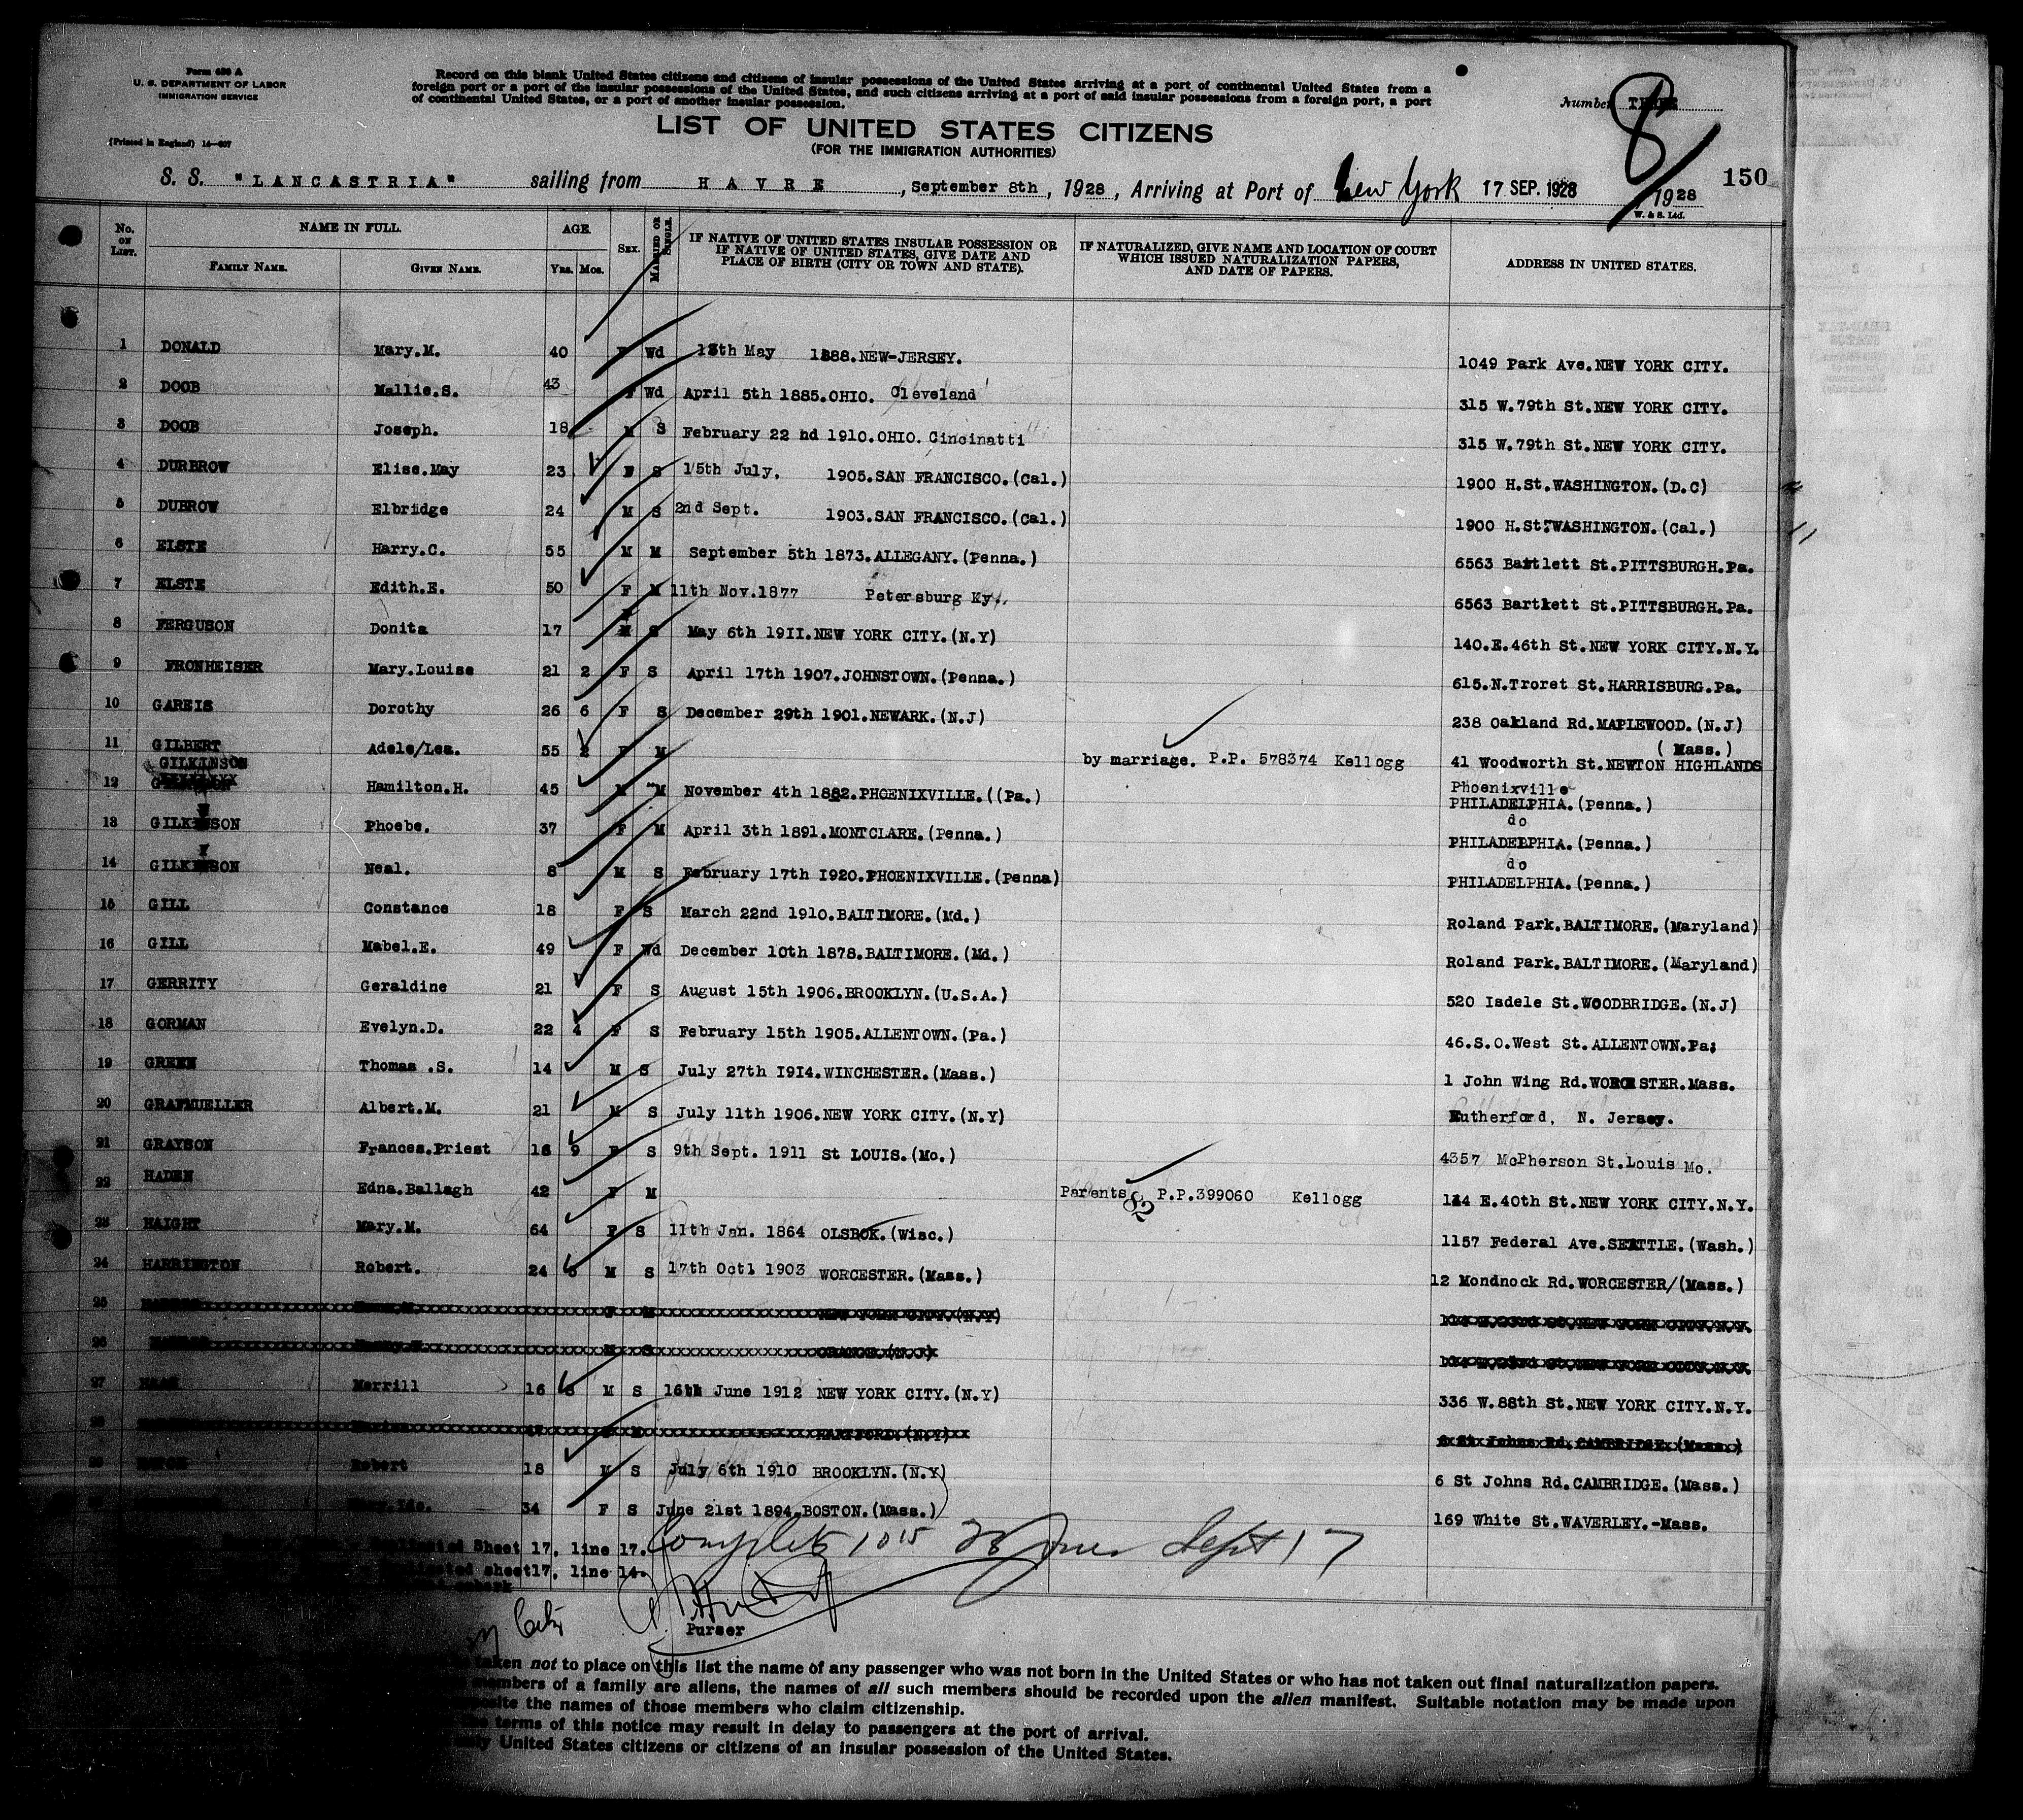 Form 630 A
U. S. DEPARTMENT OF LABOR
IMMIGRATION SERVICE
(Printed in England) 14—607
Record on this blank United States citizens and citizens of insular possessions of the United States arriving at a port of continental United States from a
foreign port or a port of the insular possessions of the United States, and such citizens arriving at a port of said insular possessions from a foreign port, a port
of continental United States, or a port of another insular possession.
Number
8
LIST OF UNITED STATES CITIZENS
(FOR THE IMMIGRATION AUTHORITIES)
150
S. S. "LANCASTRIA" sailing from HAVRE, September 8th, 1928, Arriving at Port of New York 17 SEP. 1928 1928
W. & S. Ltd.
No. ON LIST. NAME IN FULL. FAMILY NAME. GIVEN NAME. AGE. YRS. MOS. SEX. MARRIED OR SINGLE. IF NATIVE OF UNITED STATES INSULAR POSSESSION OR IF NATIVE OF UNITED STATES, GIVE DATE AND PLACE OF BIRTH (CITY OR TOWN AND STATE). IF NATURALIZED, GIVE NAME AND LOCATION OF COURT WHICH ISSUED NATURALIZATION PAPERS, AND DATE OF PAPERS. ADDRESS IN UNITED STATES.
1 DONALD Mary.M. 40 F Wd May 1888.NEW-JERSEY. 1049 Park Ave.NEW YORK CITY.
2 DOOB Mallie.S. 43 F Wd April 5th 1885.OHIO. Cleveland 315 W.79th St.NEW YORK CITY.
3 DOOB Joseph. 18 M S February 22 nd 1910.OHIO. Cincinatti 315 W.79th St.NEW YORK CITY.
4 DURBROW Elise.May 23 F S 15th July. 1905.SAN FRANCISCO.(Cal.) 1900 H.St.WASHINGTON.(D.C)
5 DUBROW Elbridge 24 M S 2nd Sept. 1903.SAN FRANCISCO.(Cal.) 1900 H.St.WASHINGTON.(Cal.)
6 ELSTE Harry.C. 55 M M September 5th 1873.ALLEGANY.(Penna.) 6563 Bartlett St.PITTSBURGH.Pa.
7 ELSTE Edith.E. 50 F M 11th Nov.1877 Petersburg Ky. 6563 Bartlett St.PITTSBURGH.Pa.
8 FERGUSON Donita 17 F S May 6th 19II.NEW YORK CITY.(N.Y) 140.E.46th St.NEW YORK CITY.N.Y.
9 FRONHEISER Mary.Louise 21 2 F S April 17th 1907.JOHNSTOWN.(Penna.) 615.N.Troret St.HARRISBURG.Pa.
10 GAREIS Dorothy 26 6 F S December 29th 1901.NEWARK.(N.J) 238 Oakland Rd.MAPLEWOOD.(N.J)
11 GILBERT Adele/Lea. 55 2 F M by marriage. P.P. 578374 Kellogg 41 Woodworth St.NEWTON HIGHLANDS (Mass.)
12 GILKINSON Hamilton.H. 45 M M November 4th 1882.PHOENIXVILLE.((Pa.) Phoenixville PHILADELPHIA.(Penna.)
13 GILKINSON Phoebe. 37 F M April 3th 1891.MONTCLARE.(Penna.) do PHILADELPHIA.(Penna.)
14 GILKINSON Neal. 8 M S February 17th I920.PHOENIXVILLE.(Penna) do PHILADELPHIA.(Penna.)
15 GILL Constance 18 F S March 22nd 1910.BALTIMORE.(Md.) Roland Park.BALTIMORE.(Maryland)
16 GILL Mabel.E. 49 F Wd December 10th 1878.BALTIMORE.(Md.) Roland Park.BALTIMORE.(Maryland)
17 GERRITY Geraldine 21 F S August 15th 1906.BROOKLYN.(U.S.A.) 520 Isdele St.WOODBRIDGE.(N.J)
18 GORMAN Evelyn.D. 22 4 F S February 15th 1905.ALLENTOWN.(Pa.) 46.S.O.West St.ALLENTOWN.Pa;
19 GREEN Thomas .S. 14 M S July 27th I9I4.WINCHESTER.(Mass.) 1 John Wing Rd.WORCESTER.Mass.
20 GRAFMUELLER Albert.M. 21 M S July 11th 1906.NEW YORK CITY.(N.Y) Rutherford, N. Jersey.
21 GRAYSON Frances.Priest 16 9 F S 9th Sept. 1911 St LOUIS.(Mo.) 4357 McPherson St.Louis Mo.
22 HADEN Edna.Ballagh 42 F M Parents 82 P.P.399060 Kellogg 114 E.40th St.NEW YORK CITY.N.Y.
23 HAIGHT Mary.M. 64 F S 11th Jan. 1864 OLSBOK.(Wisc.) 1157 Federal Ave.SEATTLE.(Wash.)
24 HARRINGTON Robert. 24 M S 17th Oct1 1903 WORCESTER.(Mass.) 12 Mondnock Rd.WORCESTER/(Mass.)
25 F M NEW YORK CITY.(N.Y)
26 M S ORANGE.(N.J)
27 Merrill 16 M S 16th June 1912 NEW YORK CITY.(N.Y) 336 W.88th St.NEW YORK CITY.N.Y.
28 47 M HARTFORD.(N.Y) St Johns Rd.CAMBRIDGE.(Mass.)
29 Robert 18 M S July 6th 1910 BROOKLYN.(N.Y) 6 St Johns Rd.CAMBRIDGE.(Mass.)
34 F S June 21st 1894.BOSTON.(Mass.) 169 White St.WAVERLEY.-Mass.
Sheet 17, line 17. Complete Sept 17
sheet17, line 14.
Purser
taken not to place on this list the name of any passenger who was not born in the United States or who has not taken out final naturalization papers.
members of a family are aliens, the names of all such members should be recorded upon the alien manifest. Suitable notation may be made upon
opposite the names of those members who claim citizenship.
terms of this notice may result in delay to passengers at the port of arrival.
only United States citizens or citizens of an insular possession of the United States.